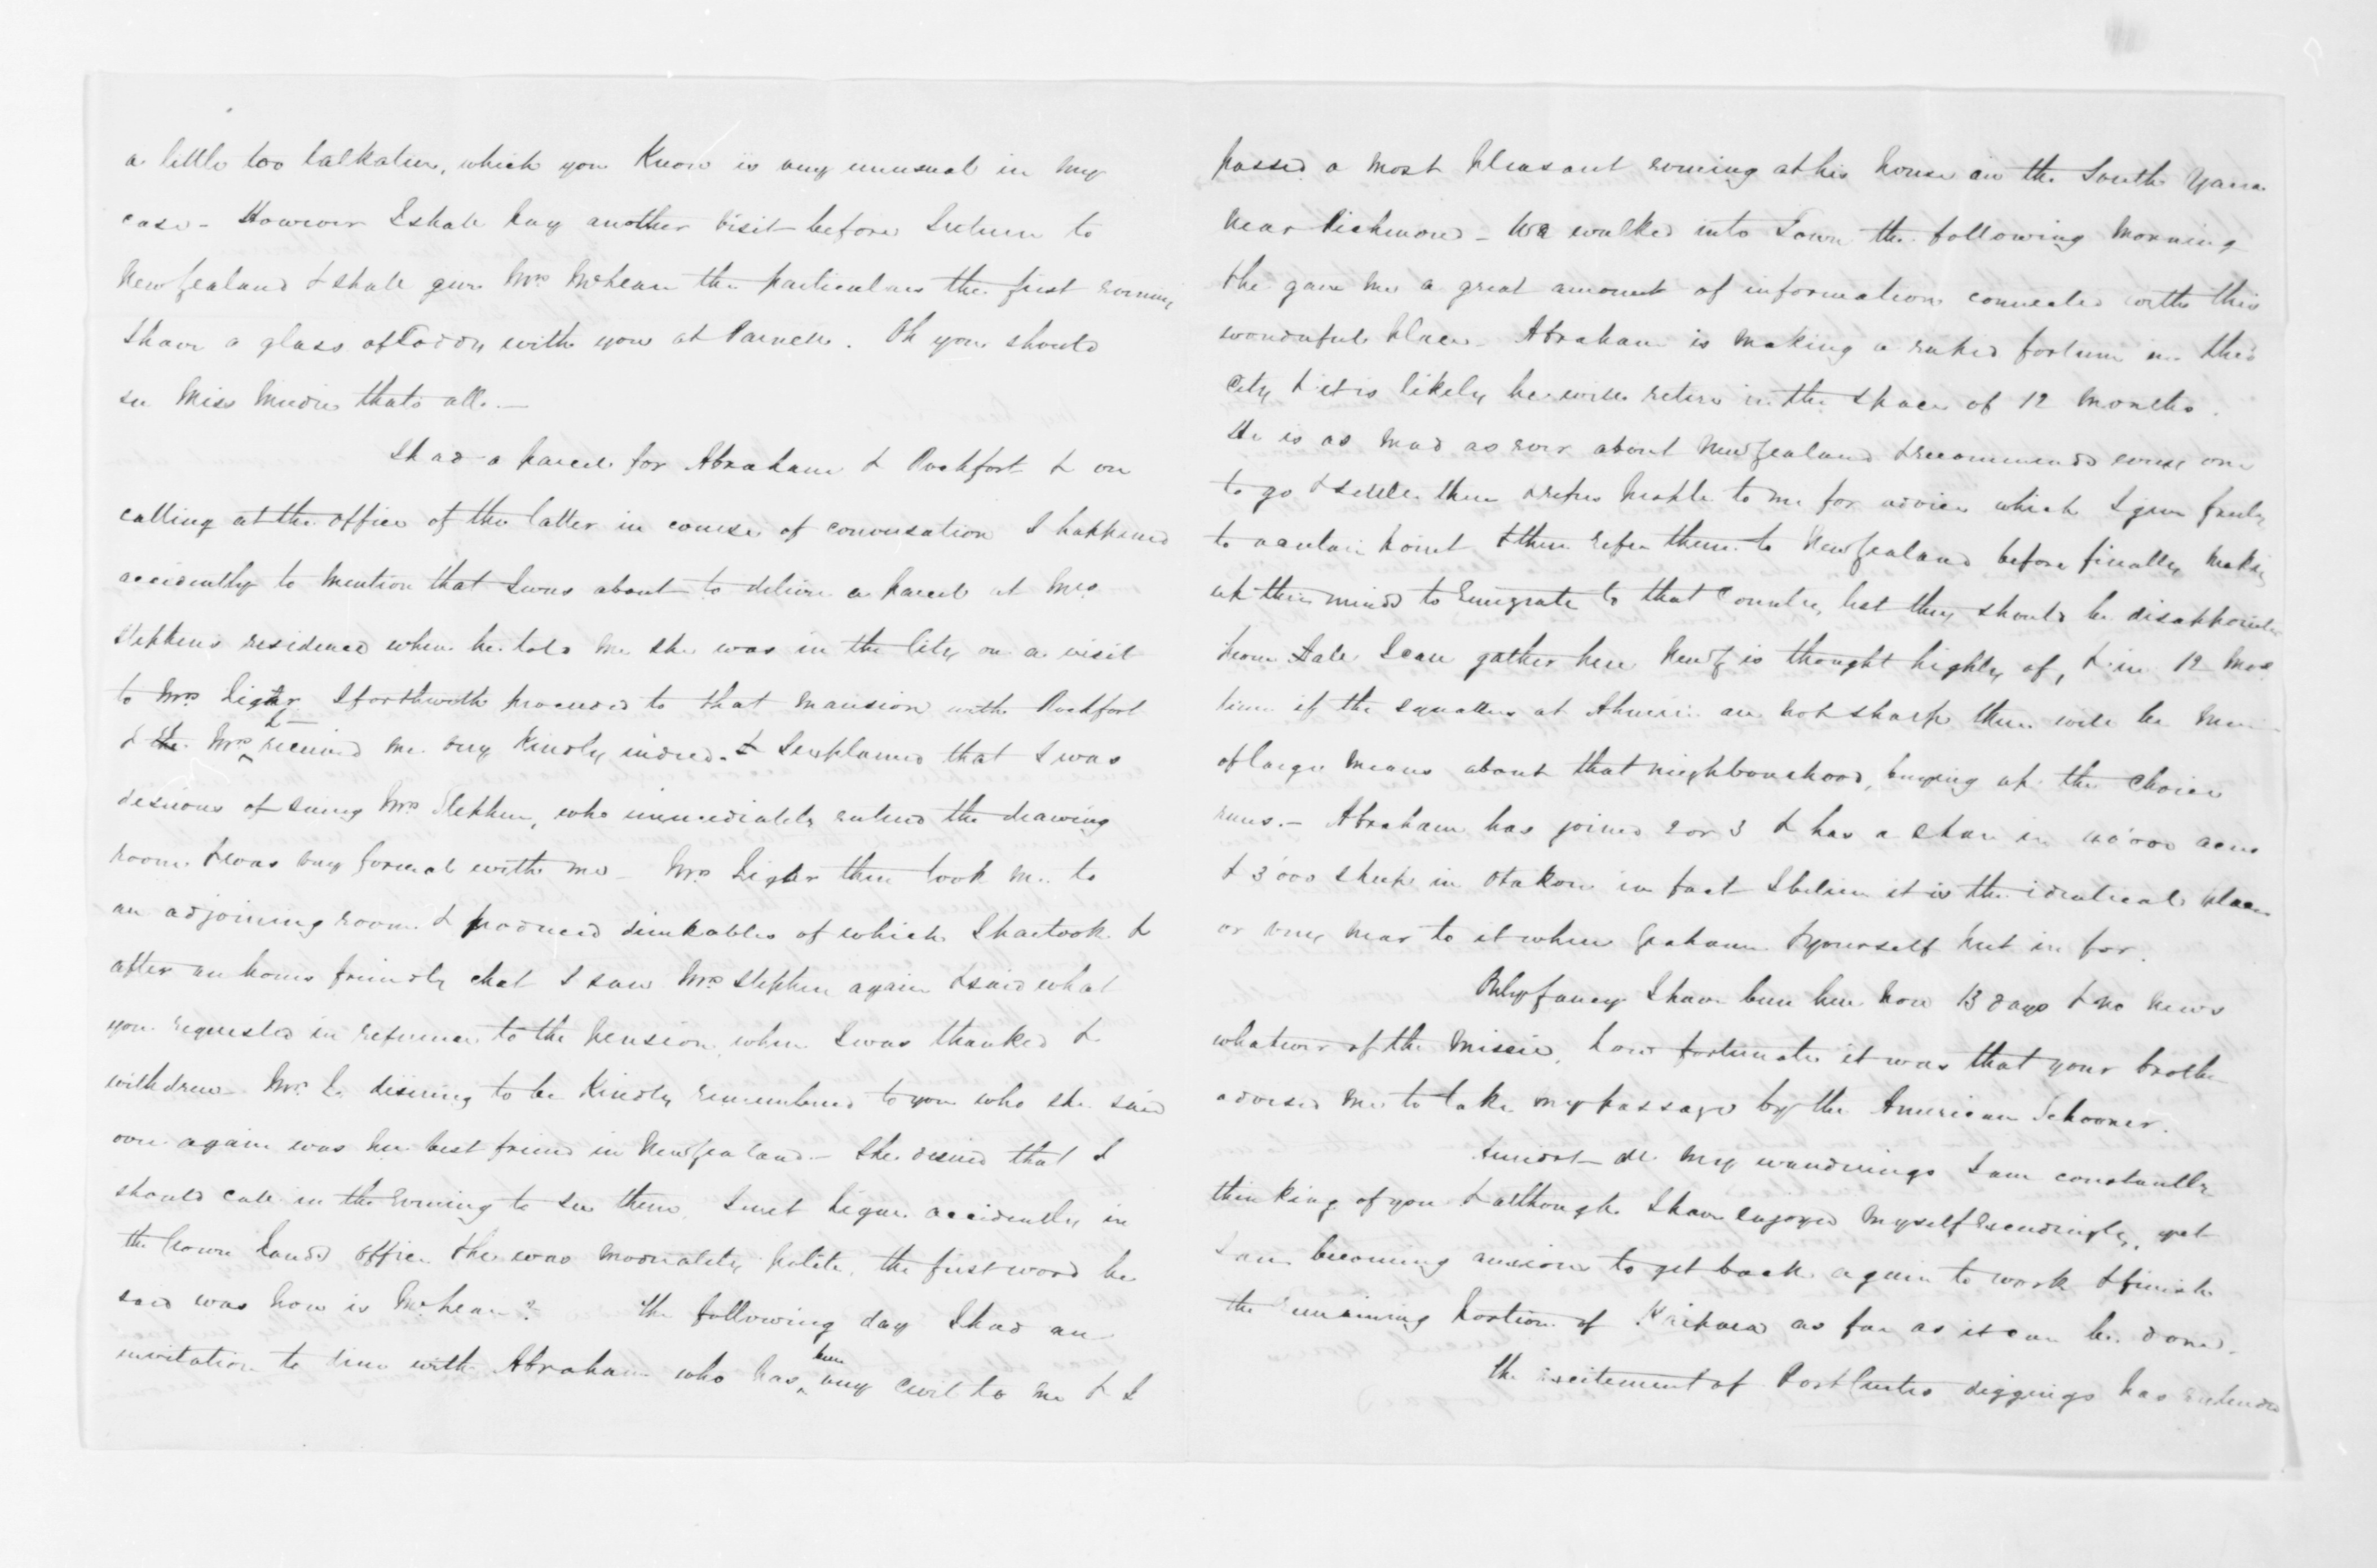 a little too talkative, which you know is very unusual in my
case - However I shall pay another visit before I return to
New Zealand & shall give Mrs McLean the particulars the first evening
I have a glass of Toddy with you at Parnell. Oh you should
see Miss Mudie thats all. -
I had a parcel for Abraham & Rochfort & on
calling at the office of the latter in course of conversation I happened
accidently to mention that I was about to deliver a parcel at Mrs
Stephens residence when he told me she was in the City on a visit
to Mrs Ligar I forthwith proceeded to that mansion with Rochfort
& Mrs L received me very kindly indeed. & I explained that I was
desirous of seeing Mrs Stephen, who immediately entered the drawing
room & was very formal with me - Mrs Ligar then took me to
an adjoining room & produced drinkables of which I partook &
after an hours friendly chat I saw Mrs Stephen again & said what
you requested in reference to the pension when I was thanked &
withdrew Mrs L. desiring to be kindly remembered to you who she said
over again was her best friend in New Zealand - She desired that I
should call in the evening to see them. I met Ligar accidently in
the Crown Lands Office & he was moderately polite, the first word he
said was how is McLean? The following day I had an
invitation to dine with Abraham who has been very civil to me & I
passed a most pleasant evening at his house on the South Yarra
near Richmond - We walked into Town the following morning
& he gave me a great amount of information connected with this
wonderful place. Abraham is making a rapid fortune in this
City & it is likely he will retire in the space of 12 months.
He is as mad as ever about New Zealand & recommends every one
to go & settle there & refers people to me for advice which I give freely
to a certain point & then refer them to New Zealand before finally making
up their minds to Emigrate to that Country, lest they should be disappointed
From I can gather here New Z is thought highly of, & in 12 mos
time if the squatters at Ahuriri are not sharp there will be men
of large means about that neighbourhood, buying up the choice
runs. - Abraham has joined 2 or 3 & has a share in acres
& 3'000 sheep in Otakou in fact I believe it is the identical place
or very near to it where Graham & yourself put in for.
Only fancy I have been here now 13 days & no news
whatever of the how fortunate it was that your brother
advised me to take my passage by the American Schooner.
Amidst all my wanderings I am constantly
thinking of you & although I have enjoyed myself exceedingly, yet
I am becoming anxious to get back again to work & finish
the remaining portion of Kaipara as far as it can be done.
The excitement of Port Curtis diggings has extended